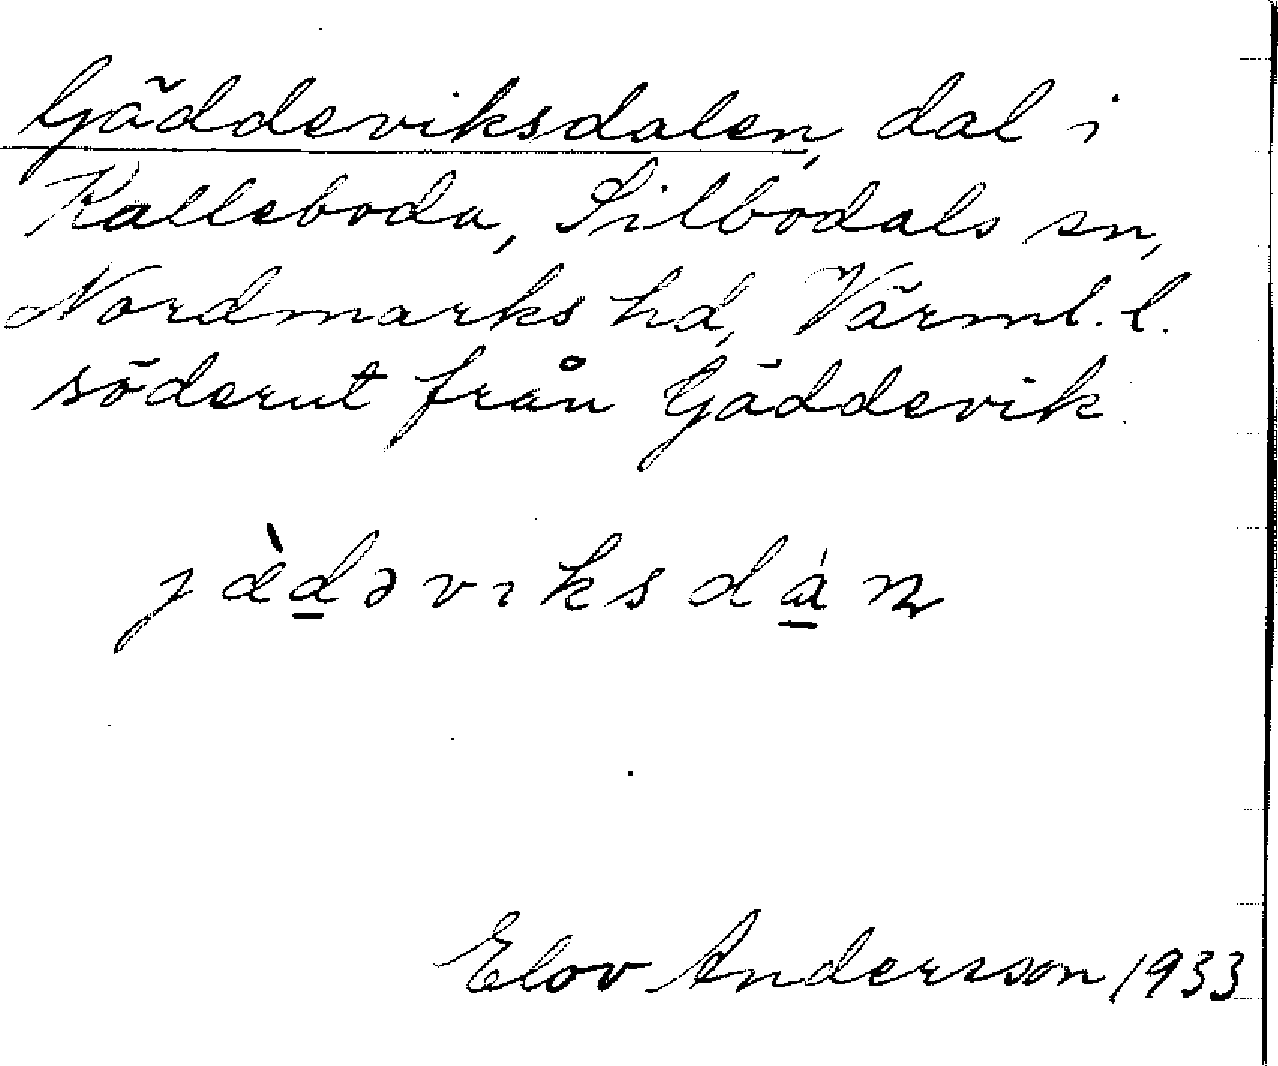 Gäddeviksdalen, dal i
Kalleboda, Silbodals sn,
Nordmarks hd, Värml. l.
söderut från Gäddevik.
jæ̀d̲əvıksdá̲n
Elov Andersson 1933